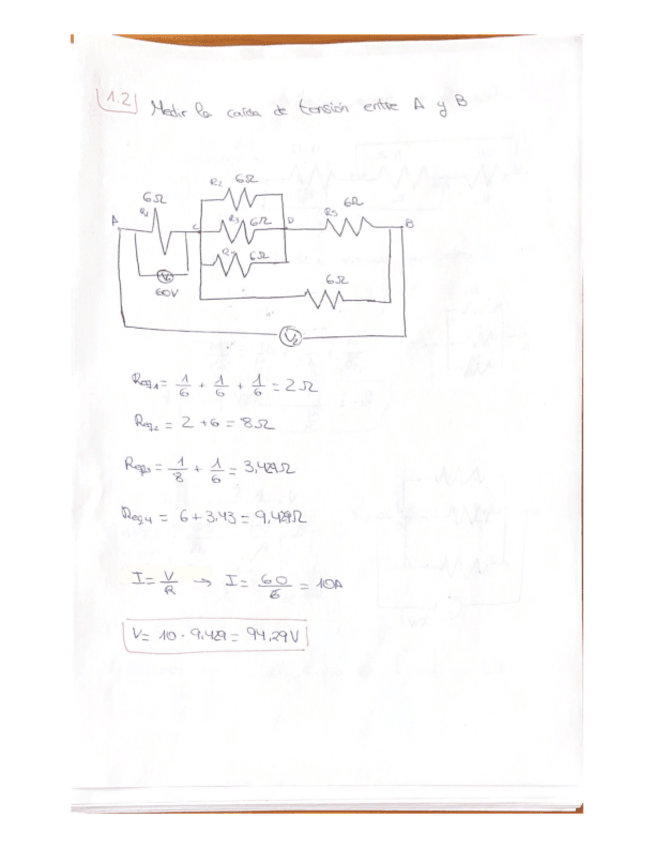 1.2 Medir la caída de tensión entre A y B
R2 6Ω
6Ω
R1
6Ω
A
C
R3 6Ω
D
R5
B
R4 6Ω
V1
60V
6Ω
V2
Req1 = 1/6 + 1/6 + 1/6 = 2Ω
Req2 = 2 + 6 = 8Ω
Req3 = 1/8 + 1/6 = 3,429Ω
Req4 = 6 + 3,43 = 9,429Ω
I = V/R → I = 60/6 = 10A
V = 10 · 9,429 = 94,29V